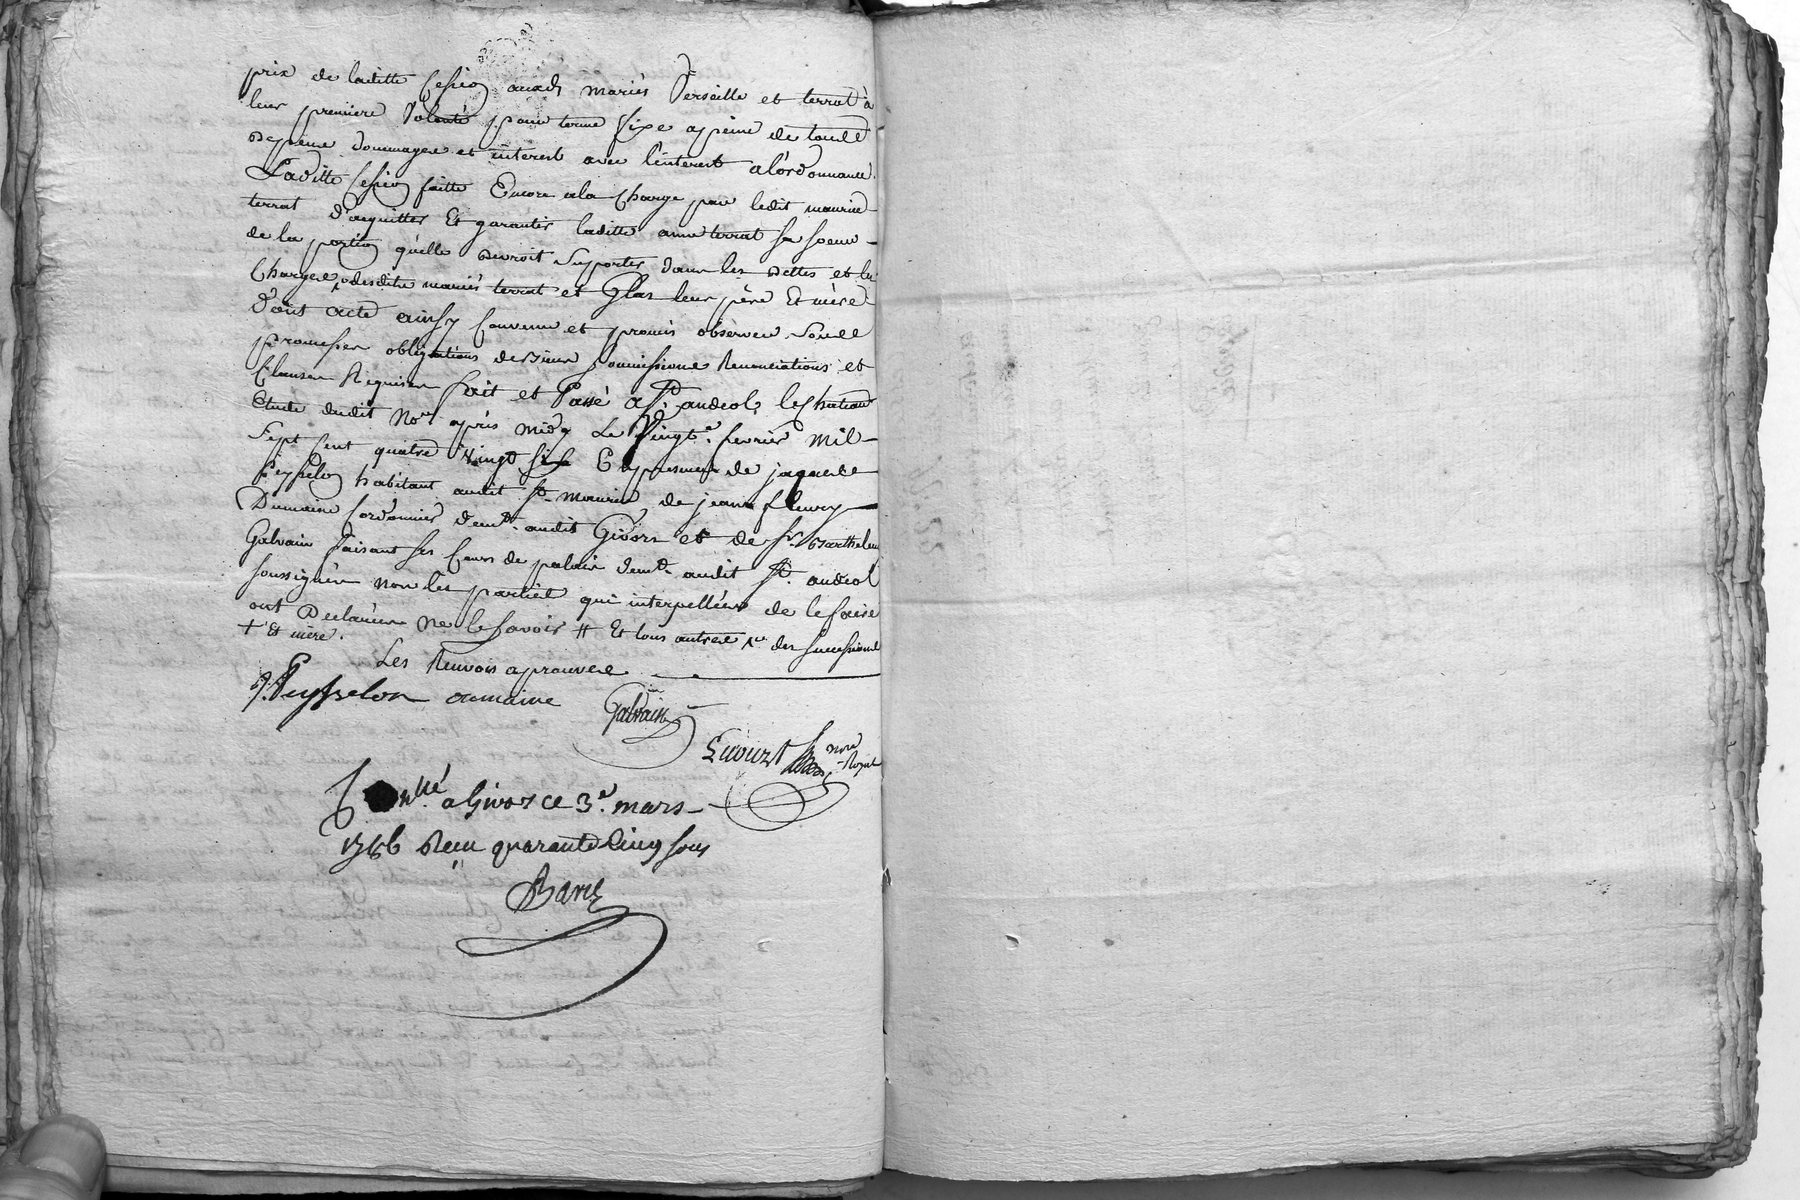 prix de laditte Cession auxds mariés Verseille et terrat à
leur premiere Volonté pour terme fixe a peine de tous
depens dommages et interest avec l'interest a l'ordonnance.
Laditte Cession faitte Encore a la Charge par ledit maurice
terrat d'acquitter Et garantir laditte anne terrat sa soeur
de la portion qu'elle devroit suporter dans les dettes et les
Charges desdits mariés terrat et Glas leur père Et mère
dont acte ainsy Convenu et promis observer sous
promesses obligations de biens soumissions Renonciations et
Clauses Requises fait et Passé a St. andeol le Chateau
Etude dudit Nore après midy Le Vingte. fevrier mil
sept cent quatre vingt six En presence de jaques
Peysselon habitant audit St. maurice, de jean fleury
Dumaine Cordonnier demt. audit Givors et de Sr. Barthelemy
Galvain faisant ses Cours de palais demt. audit St. andeol
soussignés non les parties qui interpellées de le faire
ont Declarées ne le savoir # Et tous autres des successions
+ Et mère.
Les Renvois aprouvés
J. Peysselon dumaine Galvain
nore Royal
Conllé a Givors ce 3e. mars
1786 Recu quarante Cinq sous
Barie